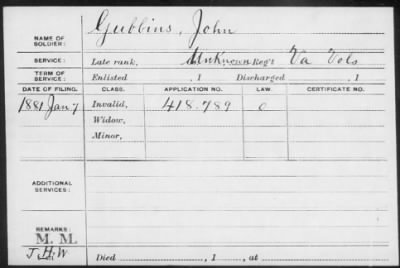 NAME OF SOLDIER: Gubbins, John
SERVICE: Late rank, Unknown Reg't Va Vols
TERM OF SERVICE: Enlisted , 1 Discharged , 1
DATE OF FILING. CLASS. APPLICATION NO. LAW. CERTIFICATE NO.
1881 Jan 7 Invalid, 418.789 C
Widow,
Minor,
ADDITIONAL SERVICES:
REMARKS:
M. M.
J H W Died , 1 , at